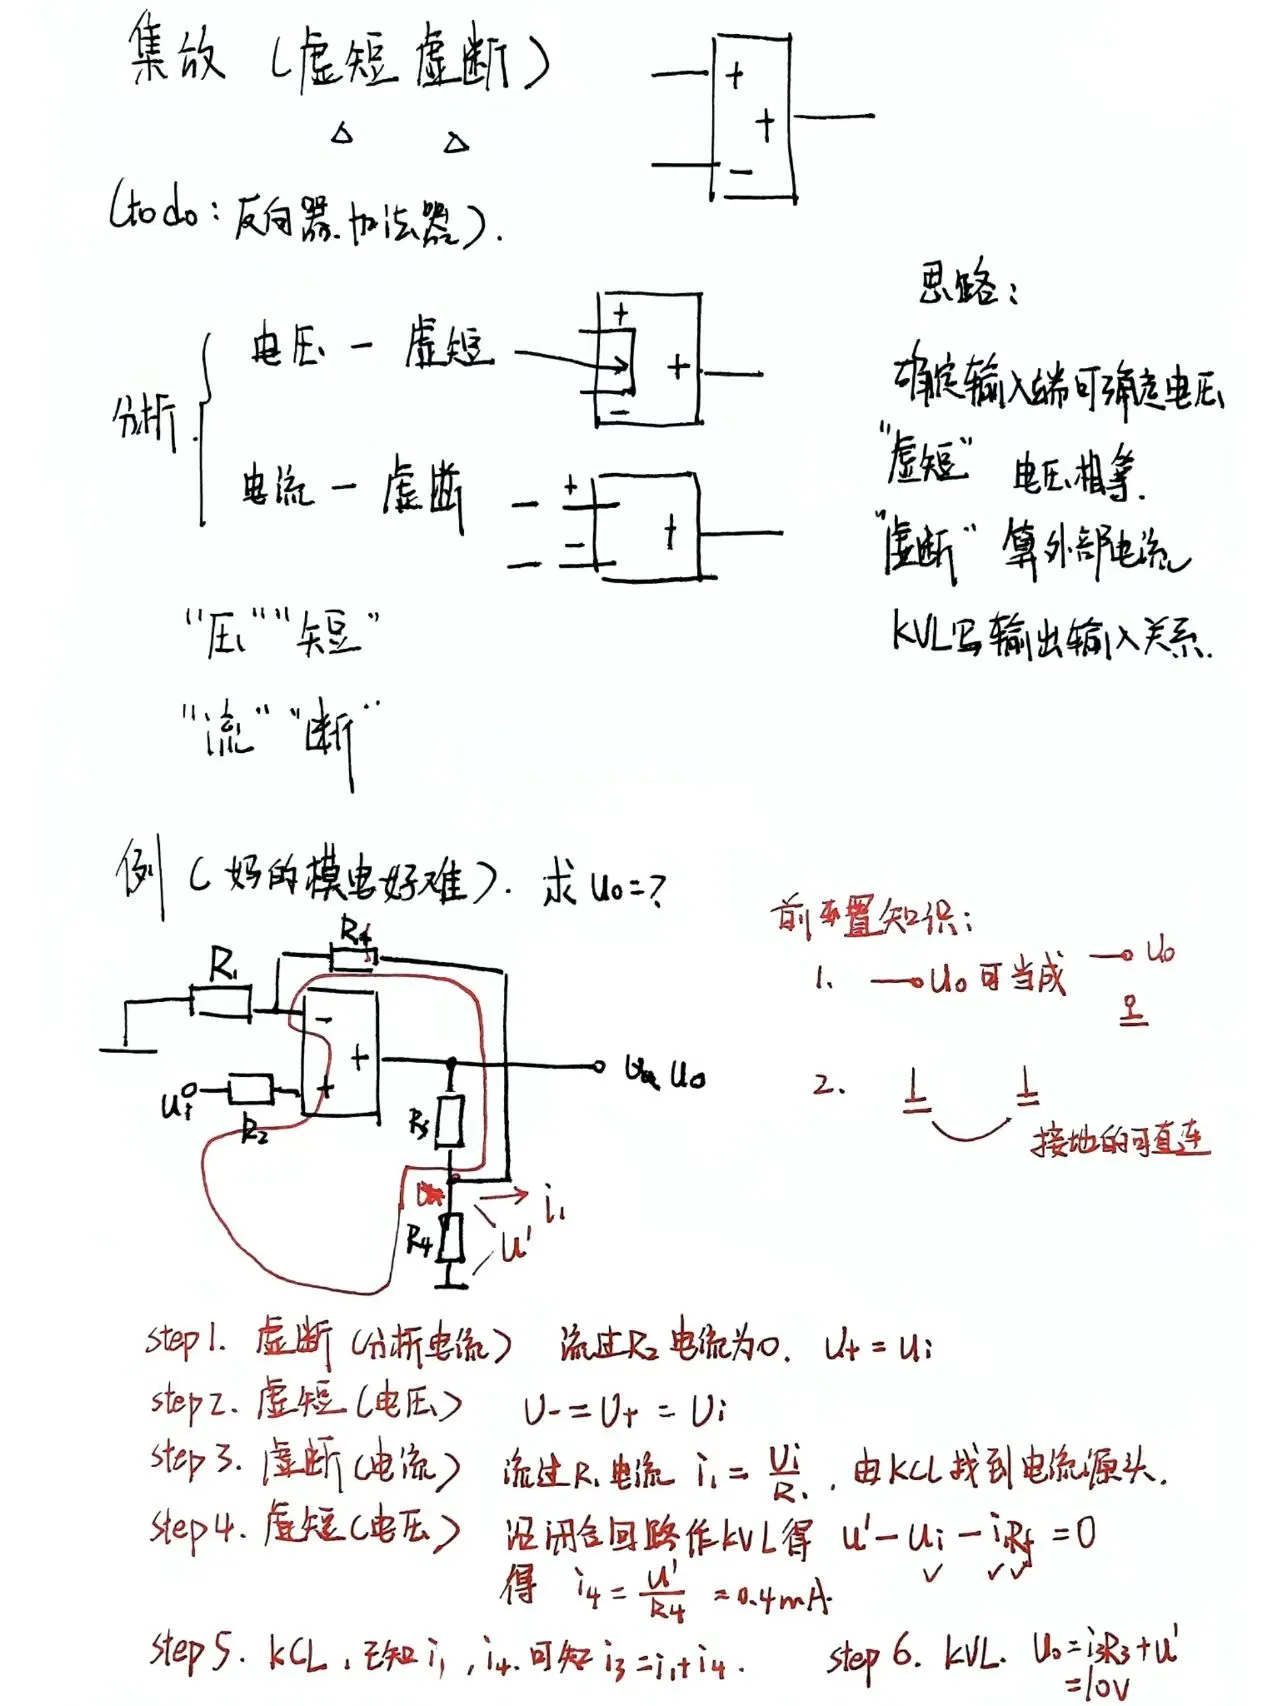 集放（虚短 虚断）
+
+
-
△ △
(todo：反向器.加法器).
思路：
分析
电压 - 虚短
+
+
-
确定输入端可确定电压
"虚短" 电压相等.
电流 - 虚断
+
-
+
"虚断" 算外部电流
KVL写输出输入关系.
"压""短"
"流""断"
例（妈的模电好难）. 求 uo=?
前置知识：
1. uo 可当成 uo
2.
接地的可直连
R1
Rf
-
+
+
ui
R2
uo
R3
i1
R4
u'
step1. 虚断（分析电流） 流过R2电流为0. u+ = ui
step2. 虚短（电压） U- = U+ = Ui
step3. 虚断（电流） 流过R1电流 i1 = Ui/R1, 由KCL找到电流源头.
step4. 虚短（电压） 沿闭合回路作KVL得 u' - ui - i1Rf = 0
得 i4 = u'/R4 = 0.4mA.
step5. KCL, 已知i1, i4. 可知 i3 = i1 + i4.
step6. KVL. Uo = i3R3 + u'
= 10V